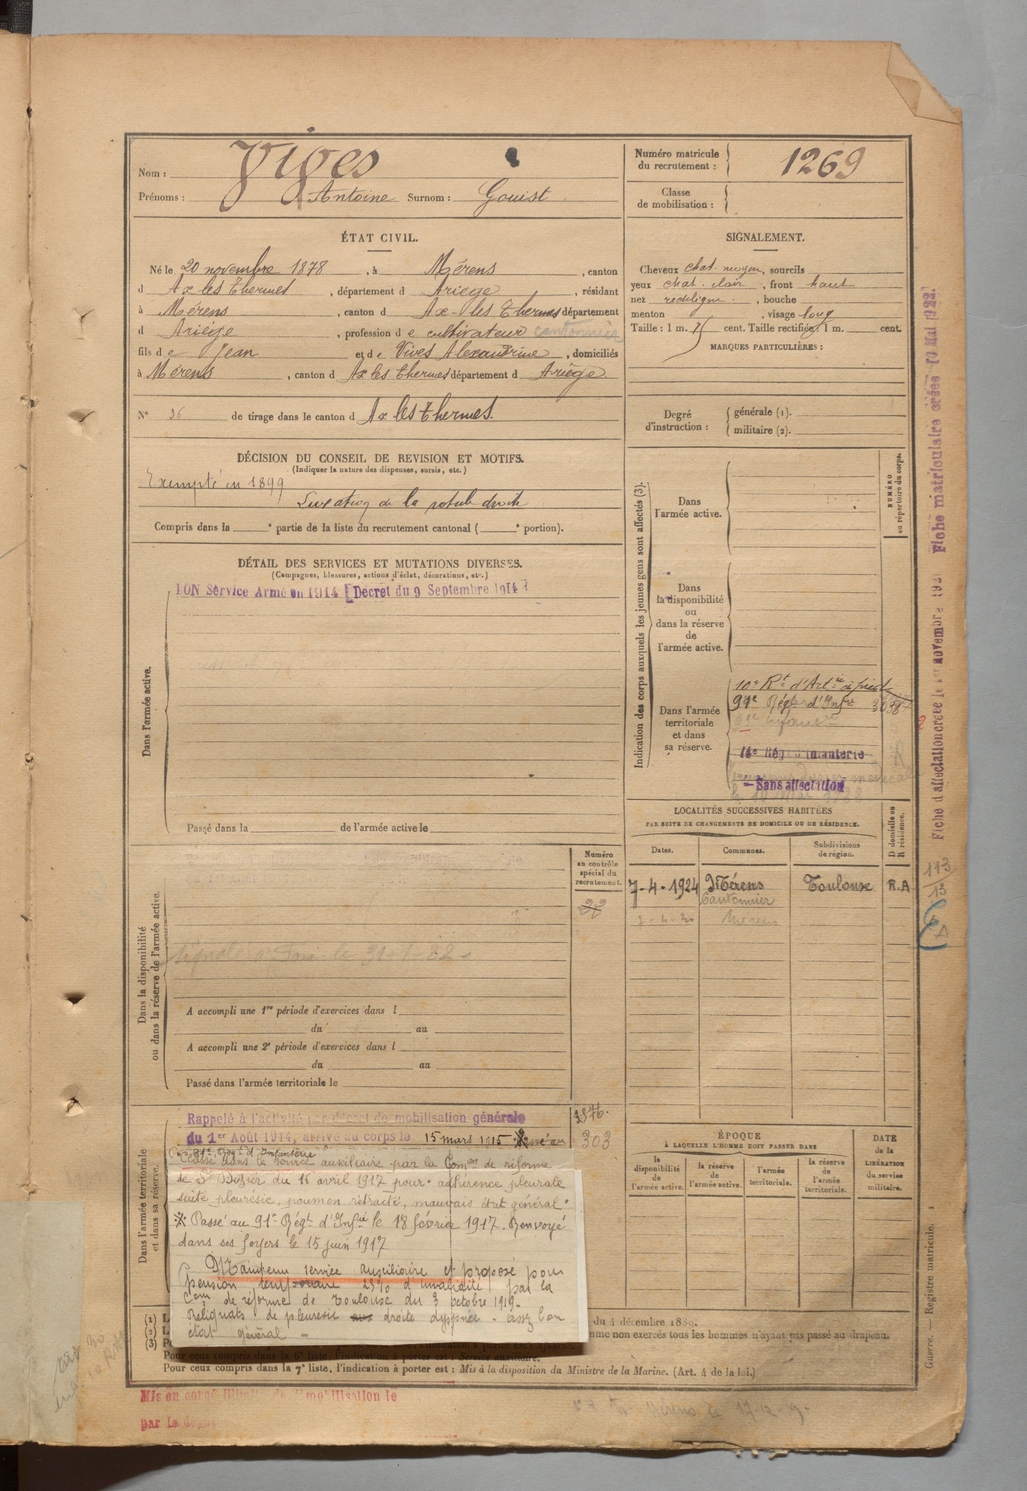 Nom : Vives
Prénoms : Antoine Surnom : Gouist
Numéro matricule du recrutement : 1269
Classe de mobilisation :
ÉTAT CIVIL.
Né le 20 novembre 1878, à Mérens, canton
d Ax les Thermes, département d Ariège, résidant
à Mérens, canton d Ax-les Thermes département
d Ariège, profession d e cultivateur cantonnier
fils d e Jean et d e Vives Alexandrine, domiciliés
à Mérens, canton d Ax les Thermes département d Ariège
N° 36 de tirage dans le canton d Ax les Thermes.
SIGNALEMENT.
Cheveux chat. moyen, sourcils
yeux chat. clair, front haut
nez rectiligne, bouche
menton, visage long
Taille : 1 m. cent. Taille rectifiée, 1 m. cent.
MARQUES PARTICULIÈRES :
Degré d'instruction : générale (1).
militaire (2).
DÉCISION DU CONSEIL DE REVISION ET MOTIFS.
(Indiquer la nature des dispenses, sursis, etc.)
Exempté en 1899
Luxation de la rotule droite
Compris dans la e partie de la liste du recrutement cantonal ( e portion).
DÉTAIL DES SERVICES ET MUTATIONS DIVERSES.
(Campagnes, blessures, actions d'éclat, décorations, etc.)
BON Service Armé en 1914 [Décret du 9 Septembre 1914]
Dans l'armée active.
Passé dans la de l'armée active le
Indication des corps auxquels les jeunes gens sont affectés (3).
NUMÉRO au répertoire du corps.
Dans l'armée active.
Dans la disponibilité ou dans la réserve de l'armée active.
Dans l'armée territoriale et dans sa réserve.
10e Rt d'Artie à pied
91e Régt d'Infie
14e Régt Infanterie
Sans affectation
LOCALITÉS SUCCESSIVES HABITÉES
PAR SUITE DE CHANGEMENTS DE DOMICILE OU DE RÉSIDENCE.
D domicile ou R résidence.
Dates. Communes. Subdivisions de région.
7-4-1924 Mérens Toulouse R.A
Cantonnier
Mérens
Numéro au contrôle spécial du recrutement.
Dans la disponibilité ou dans la réserve de l'armée active.
A accompli une 1re période d'exercices dans l
du au
A accompli une 2e période d'exercices dans l
du au
Passé dans l'armée territoriale le
Dans l'armée territoriale et dans sa réserve.
Rappelé à l'activité par décret de mobilisation générale
du 1er Août 1914, arrivé au corps le 15 mars 1915
303
Classé dans le service auxiliaire par la Comon de réforme
de St Dizier du 16 avril 1917 pour : adhérence pleurale
suite pleurésie, poumon rétracté, mauvais état général.
※ Passé au 91e Régt d'Infie le 18 février 1917. Renvoyé
dans ses foyers le 15 juin 1917
Maintenu service auxiliaire et proposé pour
pension temporaire 25% d'invalidité par la
Com de réforme de Toulouse du 3 octobre 1919.
Reliquats de pleurésie droite dyspnée. assez bon
état général
ÉPOQUE
À LAQUELLE L'HOMME DOIT PASSER DANS
la disponibilité de l'armée active.
la réserve de l'armée active.
l'armée territoriale.
la réserve de l'armée territoriale.
DATE de la LIBÉRATION du service militaire.
(1) L
(2) L
(3) P
du 4 décembre 1889.
mme non exercés tous les hommes n'ayant pas passé au drapeau.
Pour ceux compris dans la 7e liste, l'indication à porter est : Mis à la disposition du Ministre de la Marine. (Art. 4 de la loi.)
Mis en congé illimité de démobilisation le
par le dépôt
Guerre. — Registre matricule. 1
Fiche matriculaire créée 10 Mai 1922.
Fiche d'affectation créée le 1er novembre 192
113
13